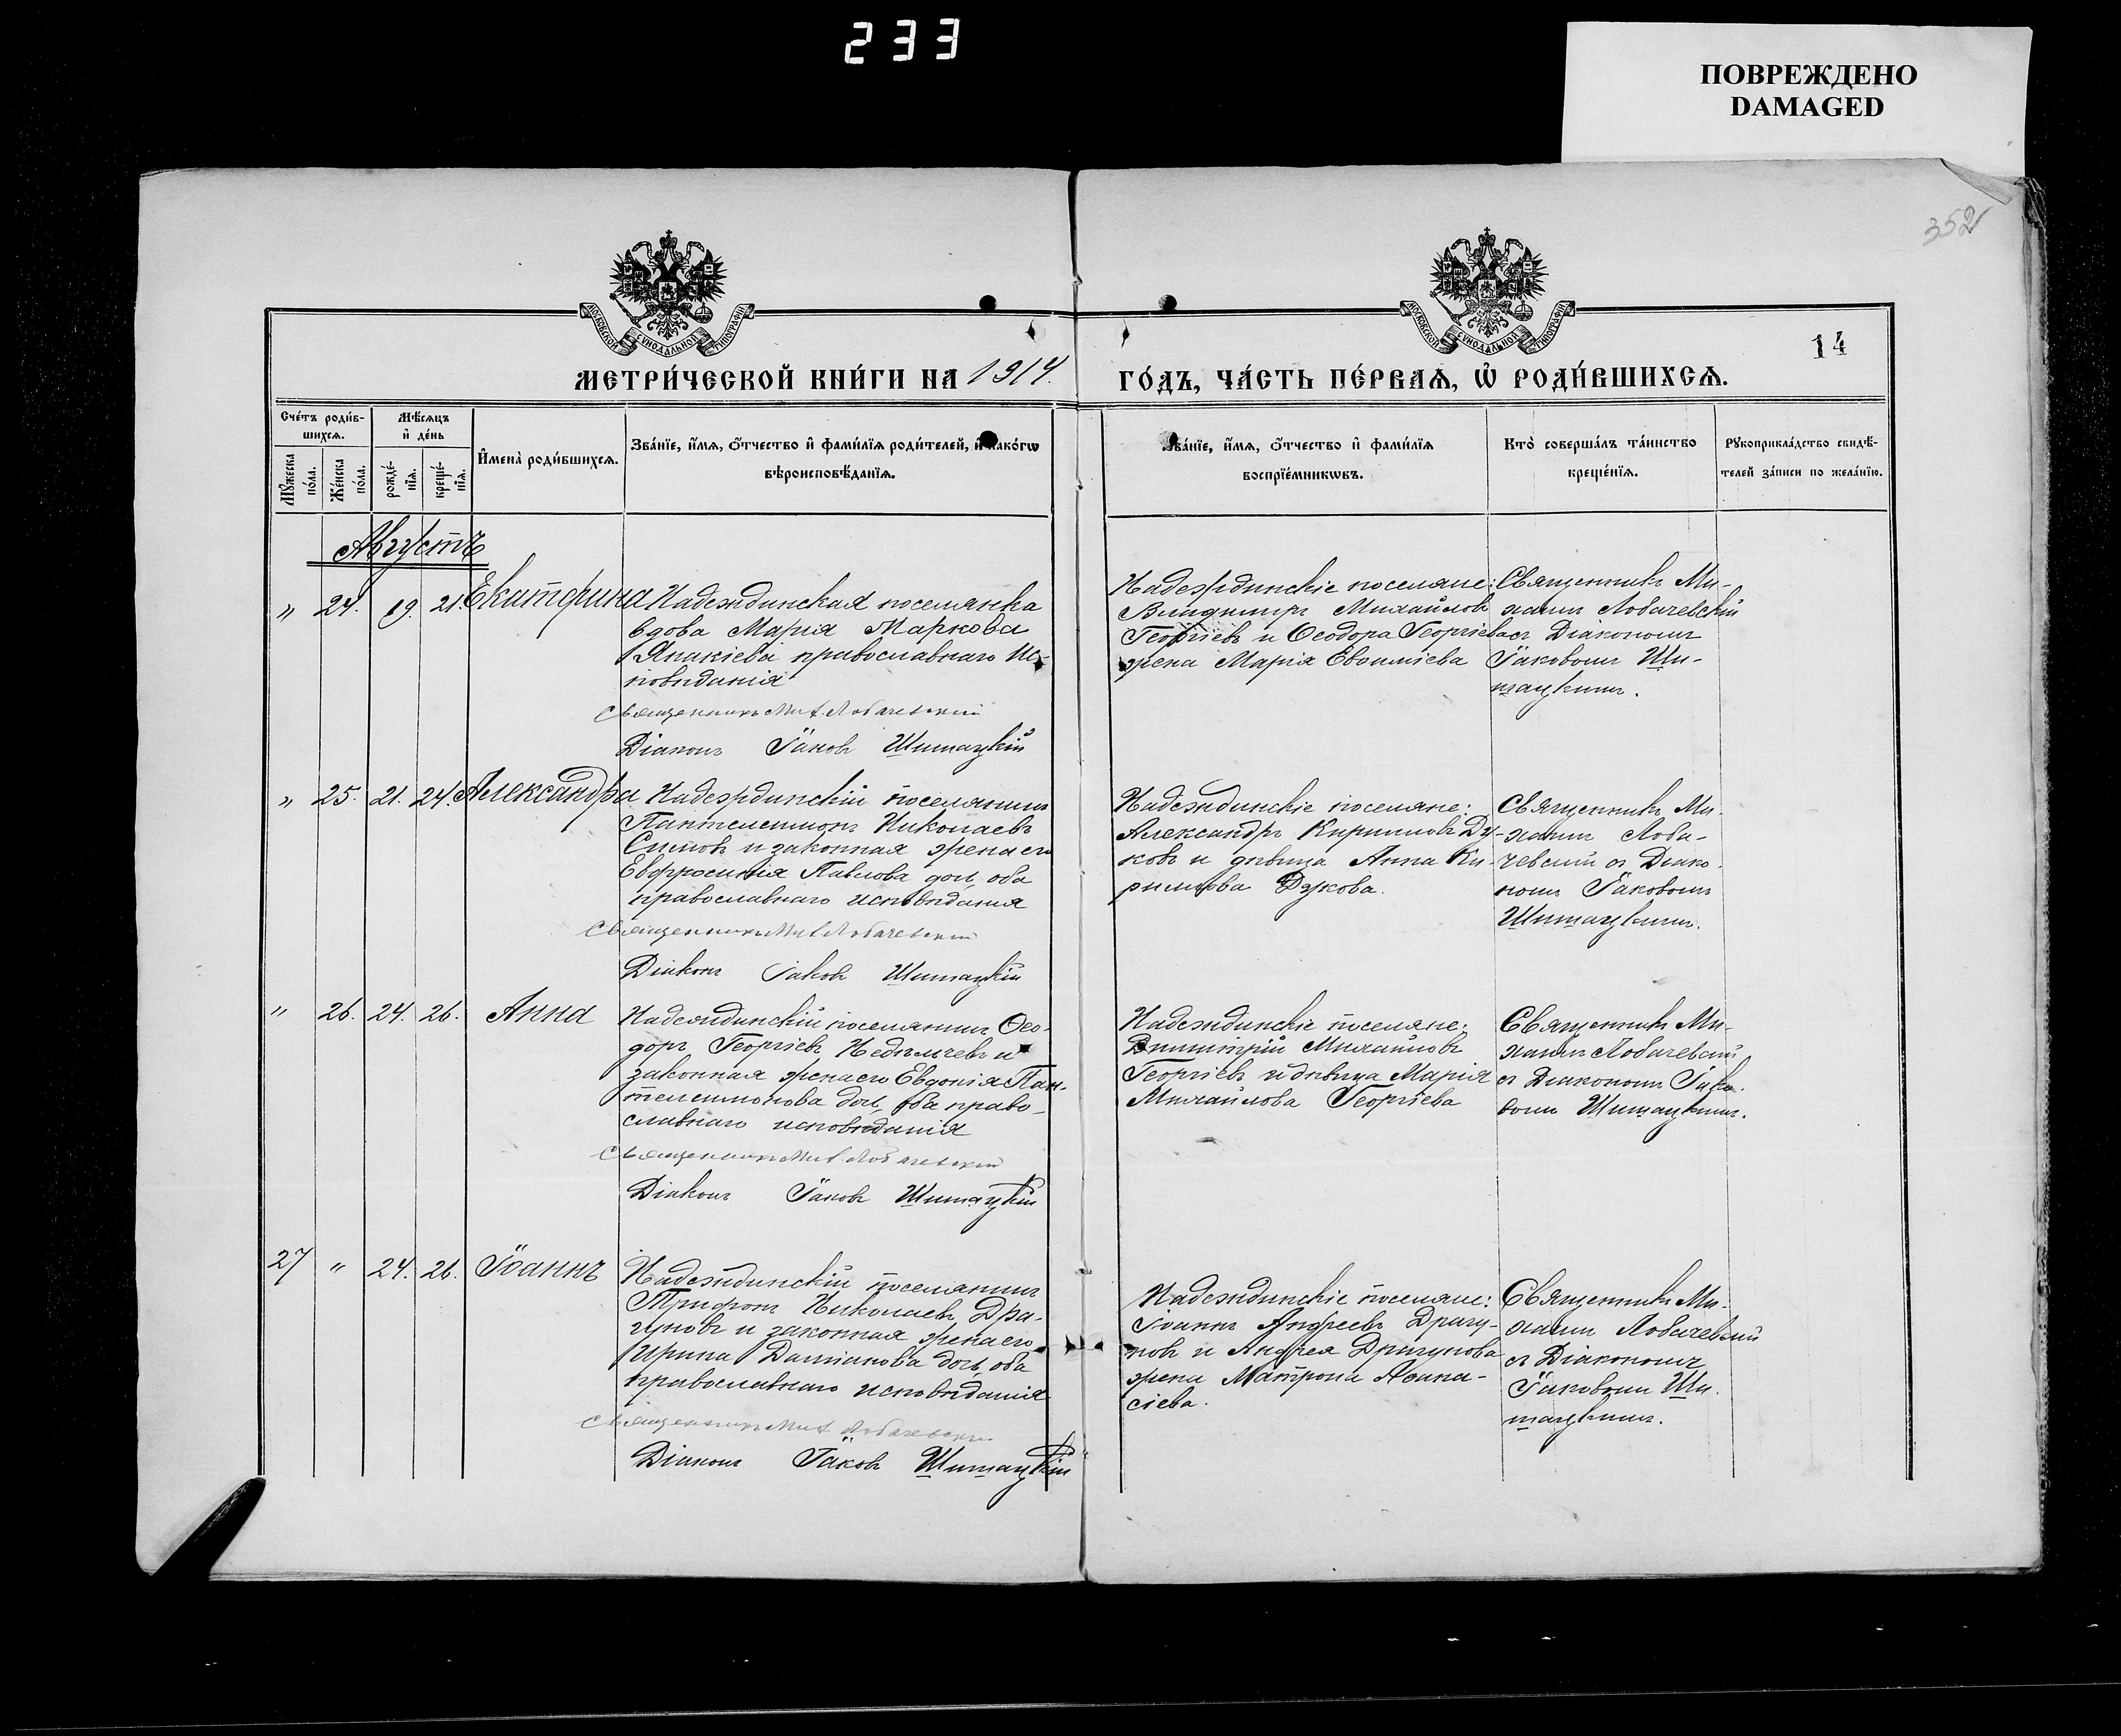 233
ПОВРЕЖДЕНО
DAMAGED
352
МОСКОВСКОЙ СѴНОДАЛЬНОЙ ТИПОГРАФІИ
МОСКОВСКОЙ СѴНОДАЛЬНОЙ ТИПОГРАФІИ
14
МЕТРИ́ЧЕСКОЙ КНИ́ГИ НА 1914.
ГО́ДЪ, ЧА́СТЬ ПЕ́РВАѦ, Ѡ҆ РОДИ́ВШИХСѦ.
Сче́тъ роди́в-
шихсѧ.
Мѣ́сѧцъ
и҆ де́нь
Мꙋ́жеска
по́ла.
Же́нска
по́ла.
рожде́-
нїѧ.
креще́-
нїѧ.
И҆мена̀ роди́вшихсѧ.
Зва́нїе, и҆́мѧ, ѻ҆́тчество и҆ фами́лїѧ роди́телей, и҆ како́гѡ
вѣроисповѣ́данїѧ.
Зва́нїе, и҆́мѧ, ѻ҆́тчество и҆ фами́лїѧ
воспрїе́мникѡвъ.
Кто̀ соверша́лъ та́инство
креще́нїѧ.
Рꙋкоприкла́дство свидѣ́-
телей за́писи по жела́нїю.
Августъ
„ 24. 19. 21. Екатерина
Надеждинская поселянка
вдова Марія Маркова
Янакіева православнаго ис-
повѣданія
Священникъ Мих. Лобачевскій
Діаконъ Іаковъ Шитацкій
Надеждинскіе поселяне:
Владиміръ Михайловъ
Георгіевъ и Ѳеодора Георгіева
жена Марія Евѳиміева
Священникъ Ми-
хаилъ Лобачевскій
съ Діакономъ
Іаковомъ Ши-
тацкимъ.
„ 25. 21. 24. Александра
Надеждинскій поселянинъ
Пантелеимонъ Николаевъ
и законная жена его
Евфросинія Павлова дочь, оба
православнаго исповѣданія
Священникъ Мих Лобачевскій
Діаконъ Іаковъ Шитацкій
Надеждинскіе поселяне:
Александръ Кирилловъ Ду-
ковъ и дѣвица Анна Ки-
риллова Дукова.
Священникъ Ми-
хаилъ Лоба-
чевскій съ Діако-
номъ Іаковомъ
Шитацкимъ.
„ 26. 24. 26. Анна
Надеждинскій поселянинъ Ѳео-
доръ Георгіевъ Недѣлчевъ и
законная жена его Евдокія Пан-
телеимонова дочь, оба право-
славнаго исповѣданія
Священникъ Мих Лобачевскій
Діаконъ Іаковъ Шитацкій
Надеждинскіе поселяне:
Димитрій Михайловъ
Георгіевъ и дѣвица Марія
Михайлова Георгіева
Священникъ Ми-
хаилъ Лобачевскій
съ Діакономъ Іако-
вомъ Шитацкимъ.
27 „ 24. 26. Іоаннъ
Надеждинскій поселянинъ
Трифонъ Николаевъ Дра-
гуновъ и законная жена его
Ирина Даміанова дочь, оба
православнаго исповѣданія
Священникъ Мих Лобачевскій
Діаконъ Іаковъ Шитацкій
Надеждинскіе поселяне:
Іоаннъ Андреевъ Драгу-
новъ и Андрея Драгунова
жена Матрона Аѳана-
сіева.
Священникъ Ми-
хаилъ Лобачевскій
съ Діакономъ
Іаковомъ Ши-
тацкимъ.